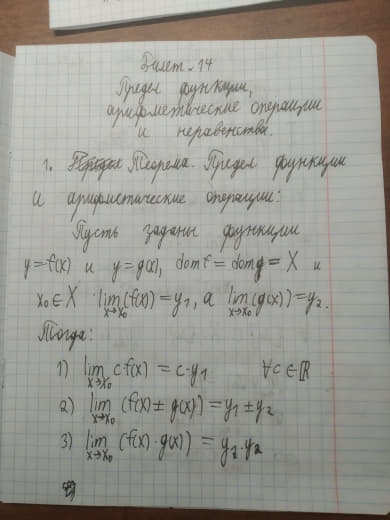 Билет 14
Предел функции,
арифметические операции
и неравенства.
1. Теорема. Предел функции
и арифметические операции:
Пусть заданы функции
y=f(x) и y=g(x), domf=domg=X и
x₀∈X lim(f(x))=y₁, а lim(g(x))=y₂.
x→x₀ x→x₀
Тогда:
1) lim c·f(x) = c·y₁ ∀c∈ℝ
x→x₀
2) lim (f(x)±g(x))=y₁±y₂
x→x₀
3) lim (f(x)·g(x)) = y₁·y₂
x→x₀